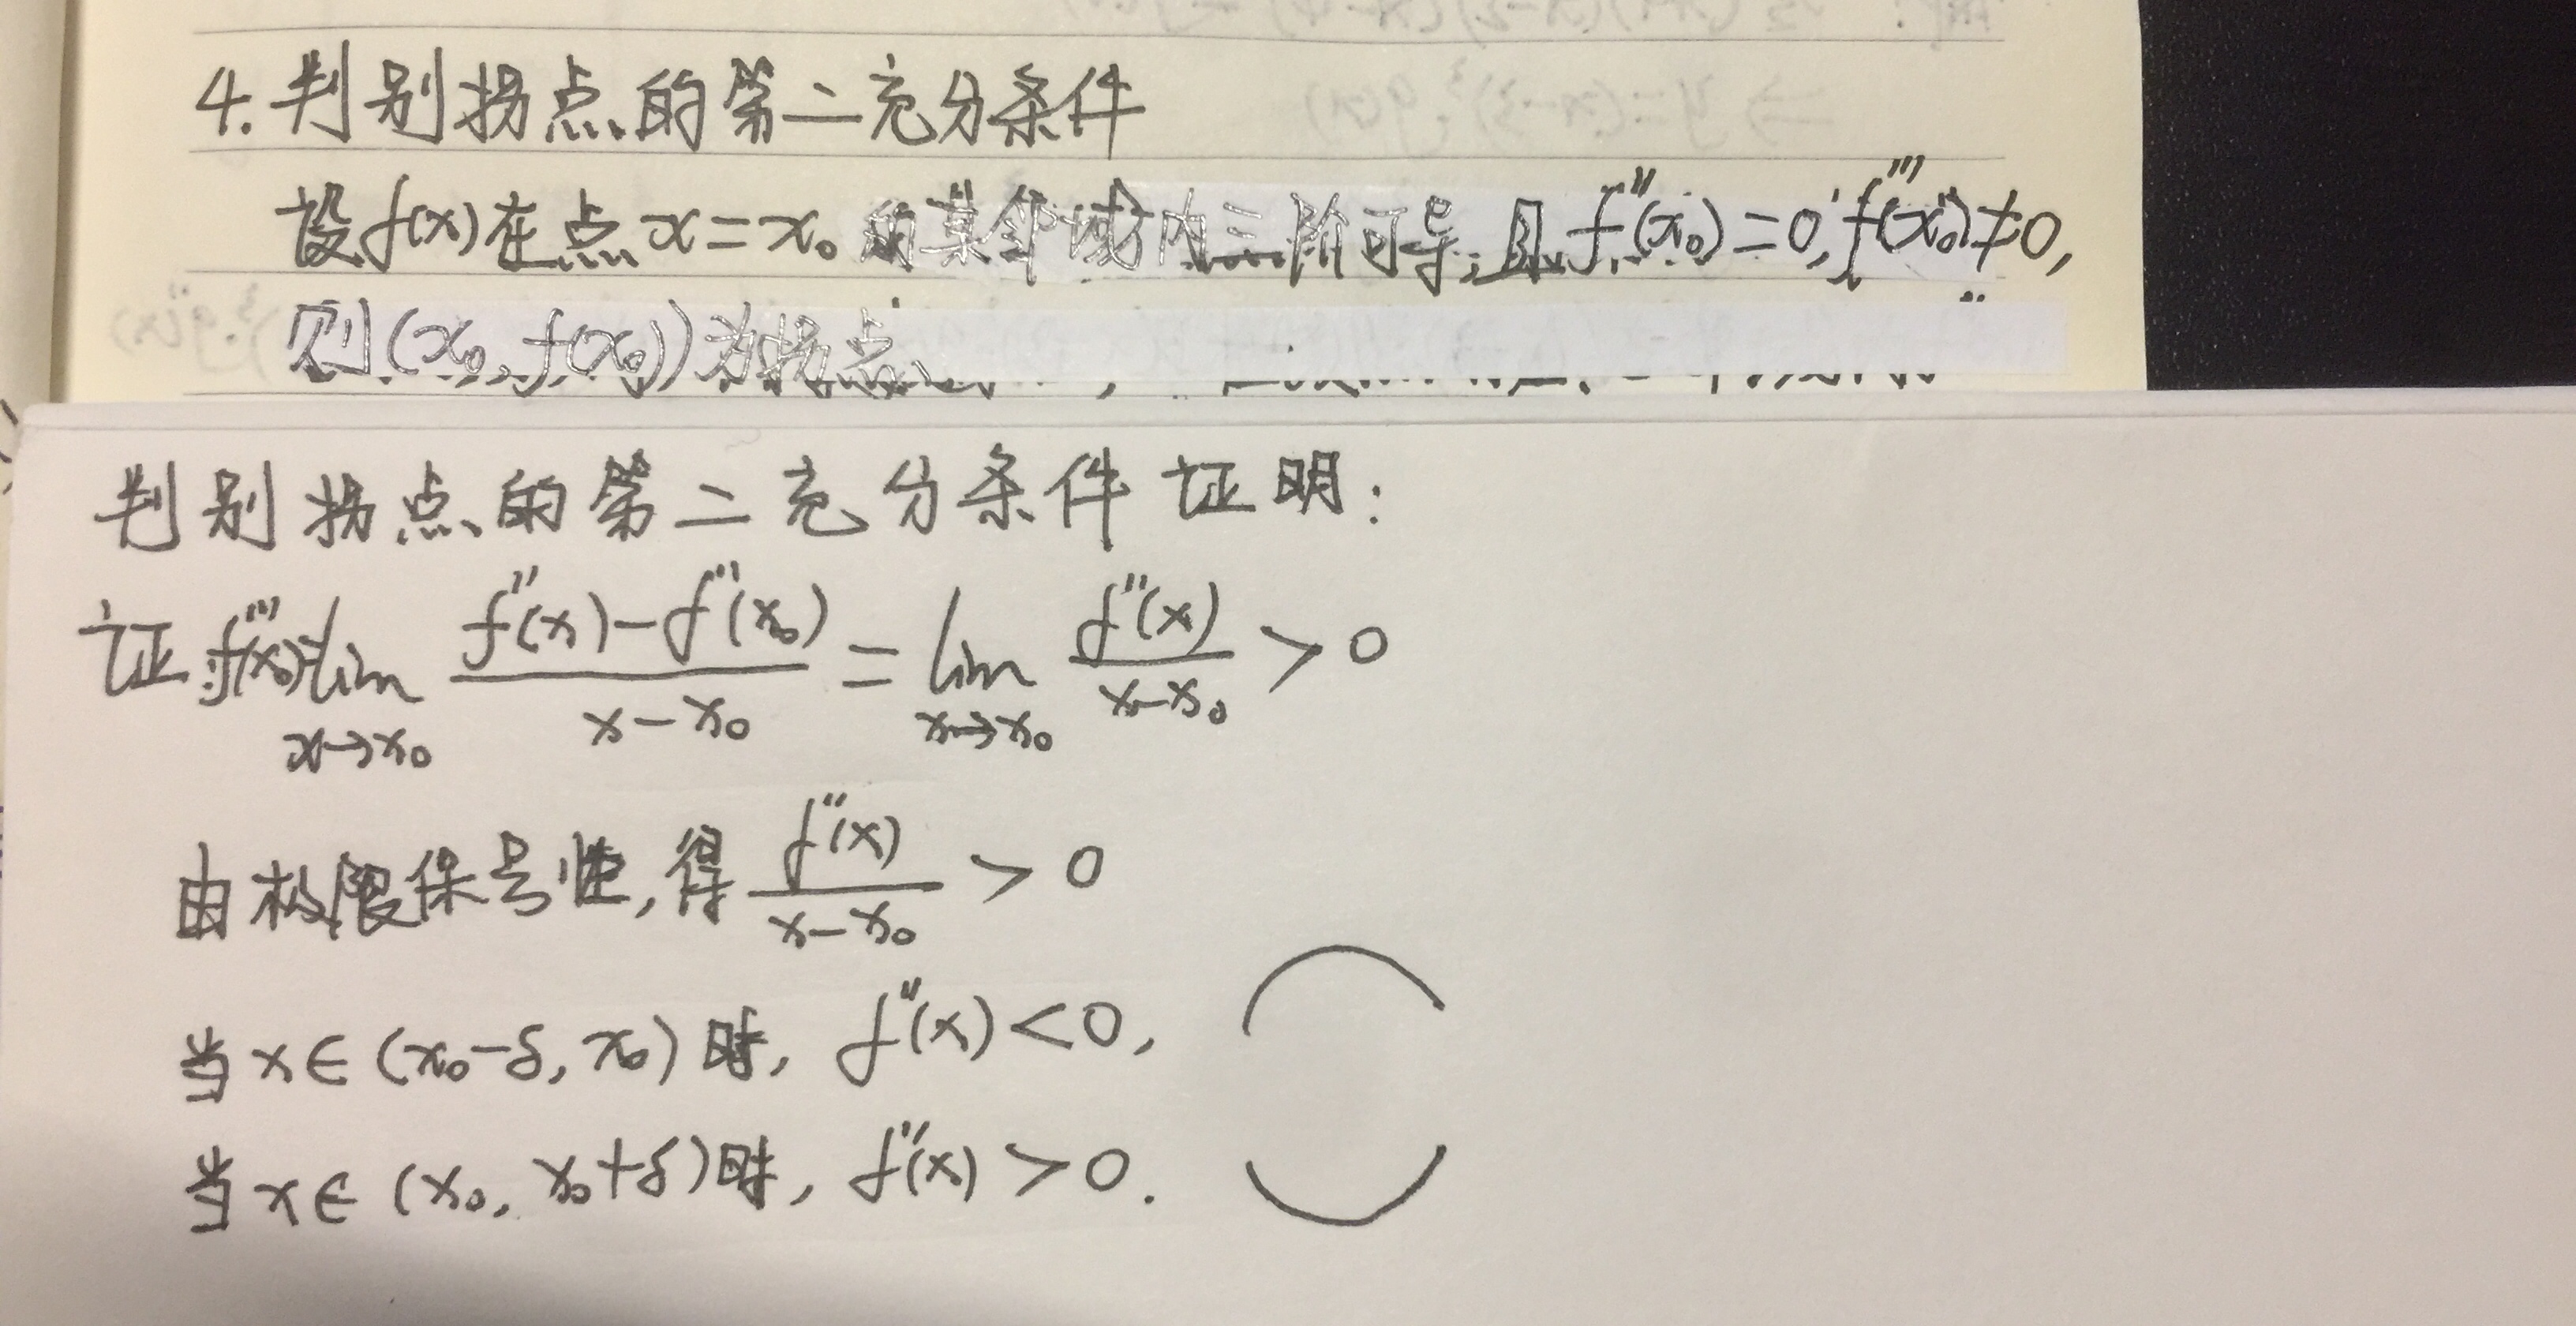 4.判别拐点的第二充分条件
设f(x)在点x=x₀的某邻域内三阶可导,且f''(x₀)=0,f'''(x₀)≠0,
则(x₀,f(x₀))为拐点.
判别拐点的第二充分条件证明:
证f'''(x₀)=lim_{x→x₀} (f''(x)-f''(x₀))/(x-x₀) = lim_{x→x₀} f''(x)/(x-x₀) > 0
由极限保号性,得 f''(x)/(x-x₀) > 0
当x∈(x₀-δ,x₀)时, f''(x)<0,
当x∈(x₀,x₀+δ)时, f''(x)>0.